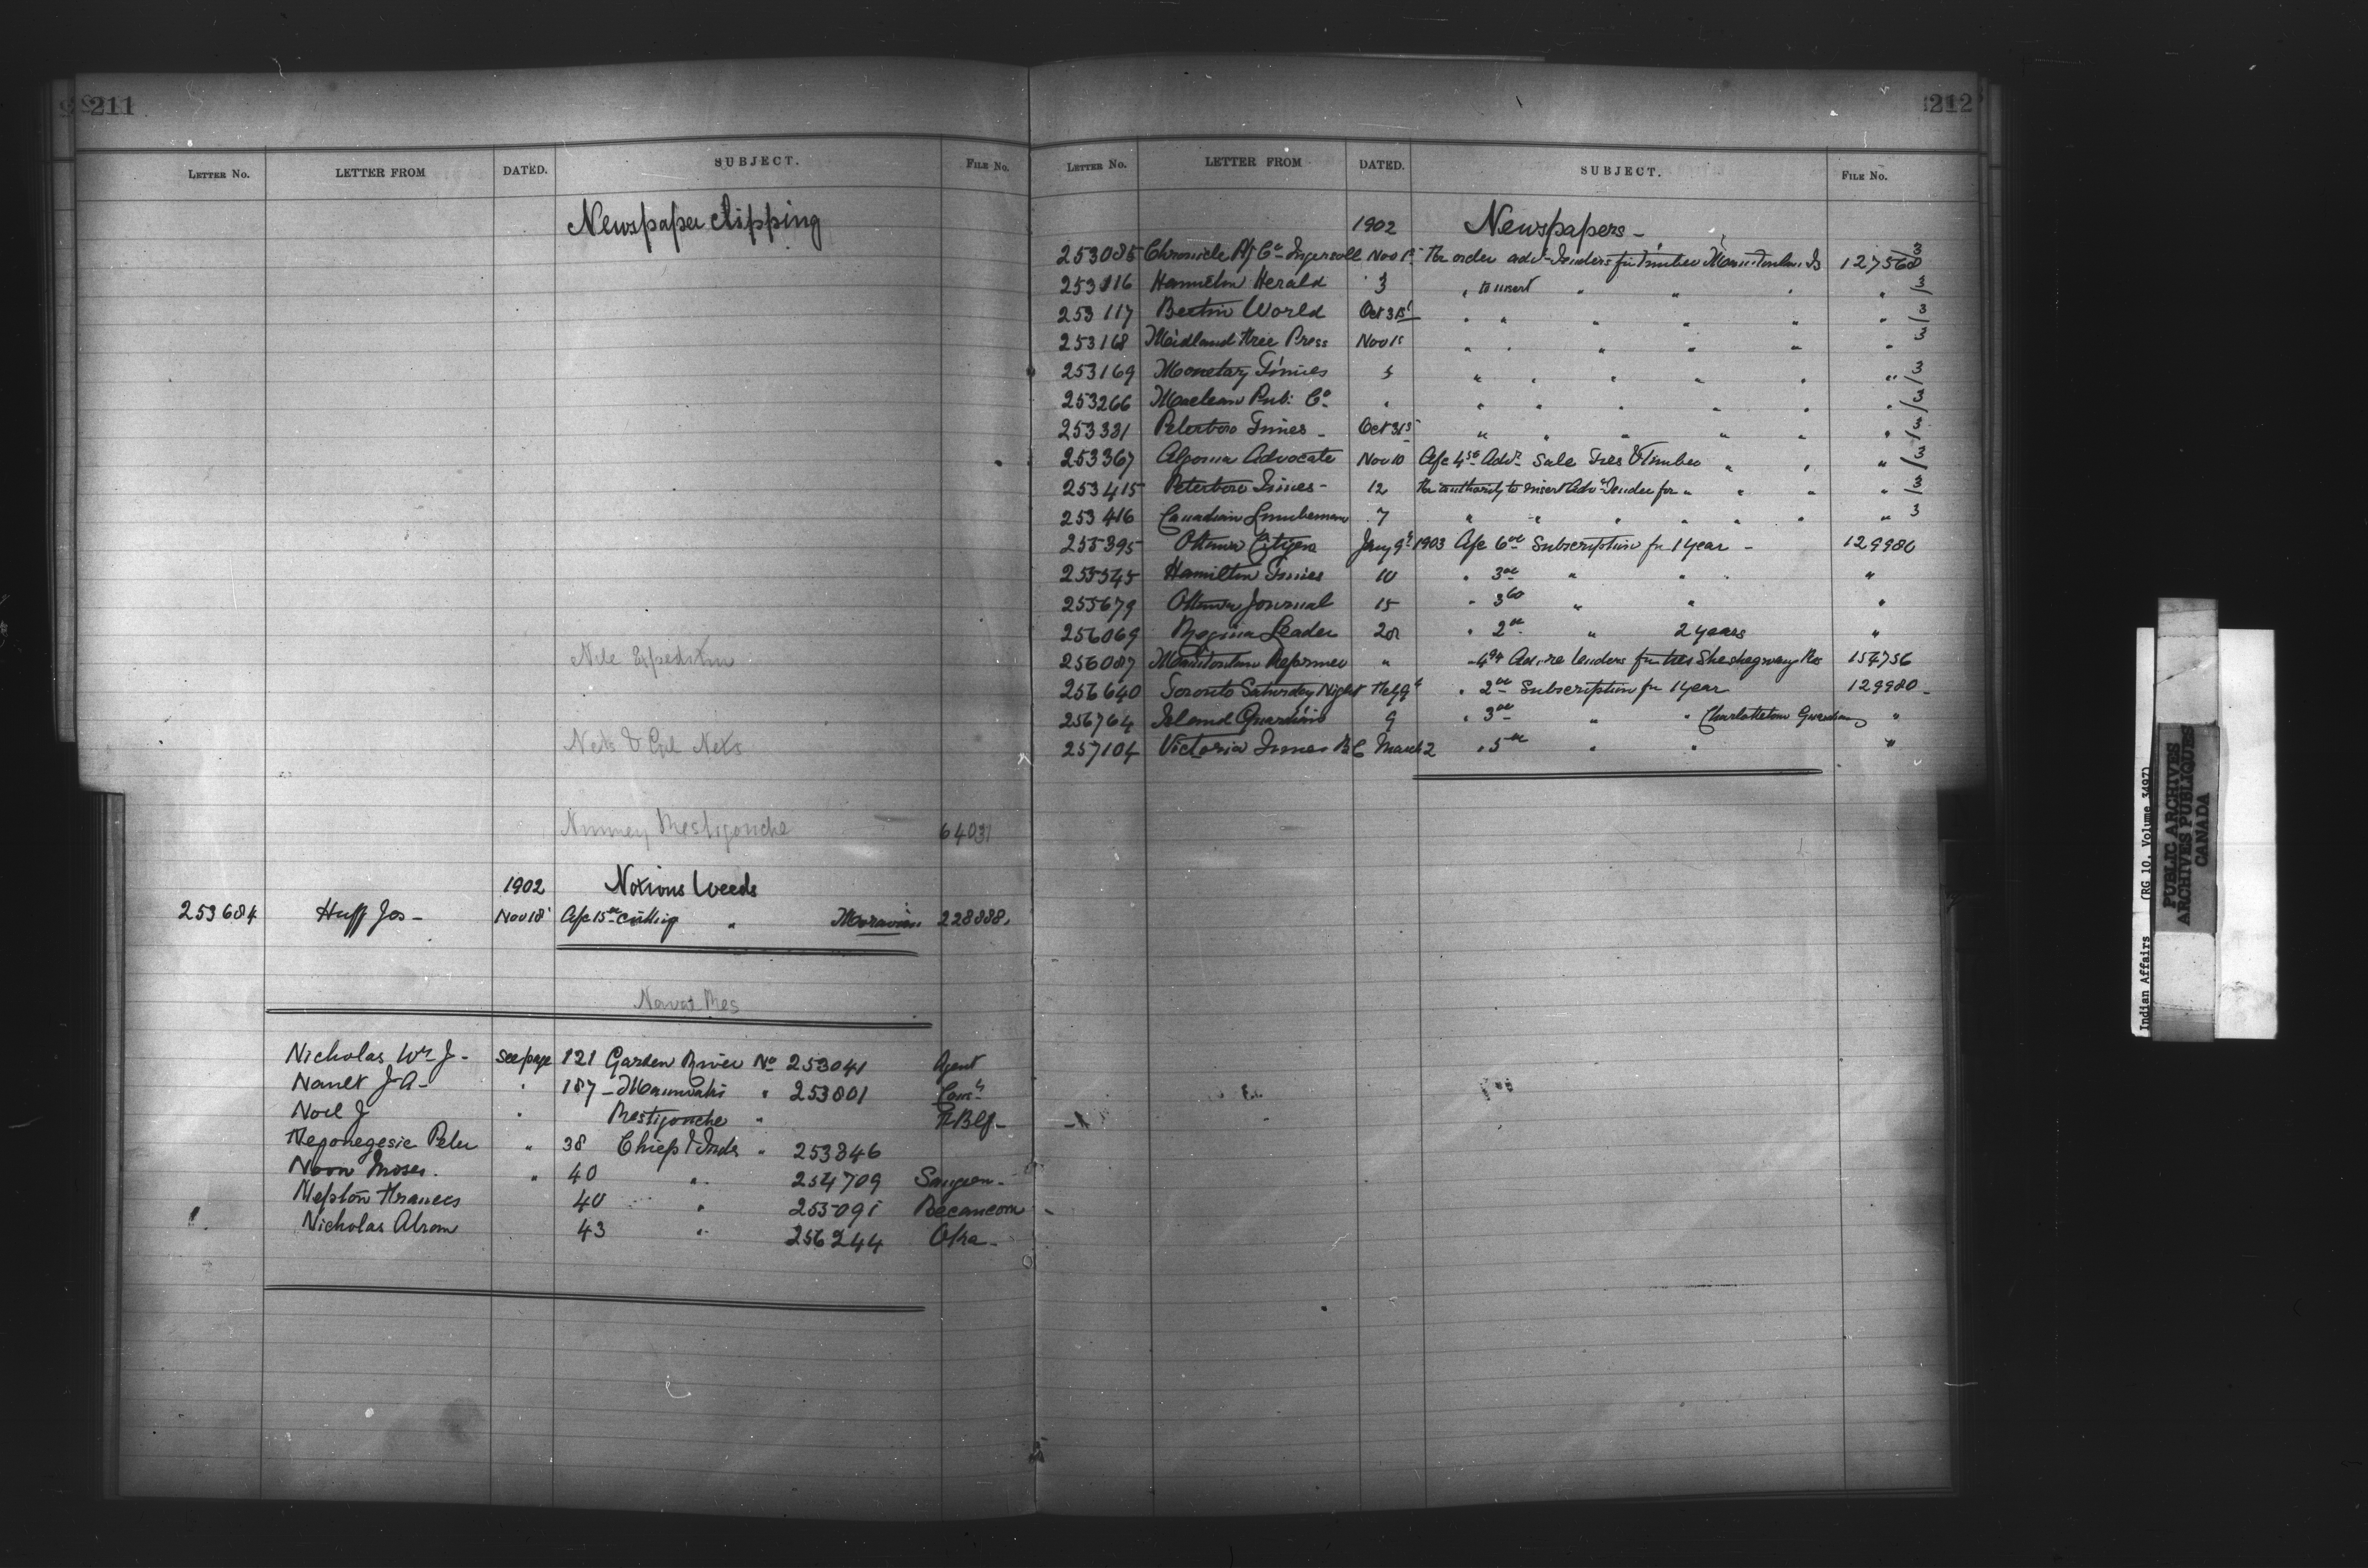 211
LETTER No. LETTER FROM DATED. SUBJECT. FILE No.
Newspaper clipping
Nile Expedition
Nets & Gill Nets
Restigouche 64031
1902 Noxious Weeds
253684 Huff Jos - Nov 18 A/c 15.00 cutting " Moravian 228888.
Nicholas Wm J - See page 121 Garden River No 253041 Agent
J A - " 187 - Maniwaki " 253801
Noel J " Restigouche "
Negonegesic Peter " 38 Chiefs & Inds " 253846
Noon Moses. " 40 " 254709 Saugeen -
Francis 40 " 255091 Becancour -
Nicholas Abrom 43 " 256244 Oka -
212
LETTER No. LETTER FROM DATED. SUBJECT. FILE No.
1902 Newspapers -
253085 Chronicle Co - Ingersoll Nov 1st Re order advt Tenders for Timber Manitoulin Is 127568 /3
253116 Hamilton Herald 3 " to insert " " " " /3
253117 World Oct 31st " " " " " " /3
253168 Midland Free Press Nov 1st " " " " " " 3
253169 Monetary Times 5 " " " " " " /3
253266 Maclean Pub. Co. " " " " " " " /3
253331 Peterboro Times - Oct 31st " " " " " " /3
253367 Algoma Advocate Nov 10 A/c Advt Sale Ties & Timber " " " /3
253415 Peterboro Times - 12 Re authority to insert Advt Tender for " " " " /3
253416 Canadian Lumberman 7 " " " " " " " 3
255395 Ottawa Citizen Jany 9th 1903 A/c 6.00 Subscription for 1 year - 129980
255545 Hamilton Times 10 " 3.00 " " "
255679 Ottawa Journal 15 " 3.60 " " "
256069 Regina Leader 28 " 2.00 " 2 years "
256087 Manitoulin Reformer " Adv. re tenders for ties Sheshegwaning Res 154756
256640 Toronto Saturday Night Feby 9th " 2.00 Subscription for 1 year 129980 -
256764 Island Guardian 9 " 3.00 " " Charlottetown Guardian "
257104 Victoria Times B.C. March 2 " 5.00 " " "
Indian Affairs (RG 10, Volume 3497)
PUBLIC ARCHIVES
ARCHIVES PUBLIQUES
CANADA